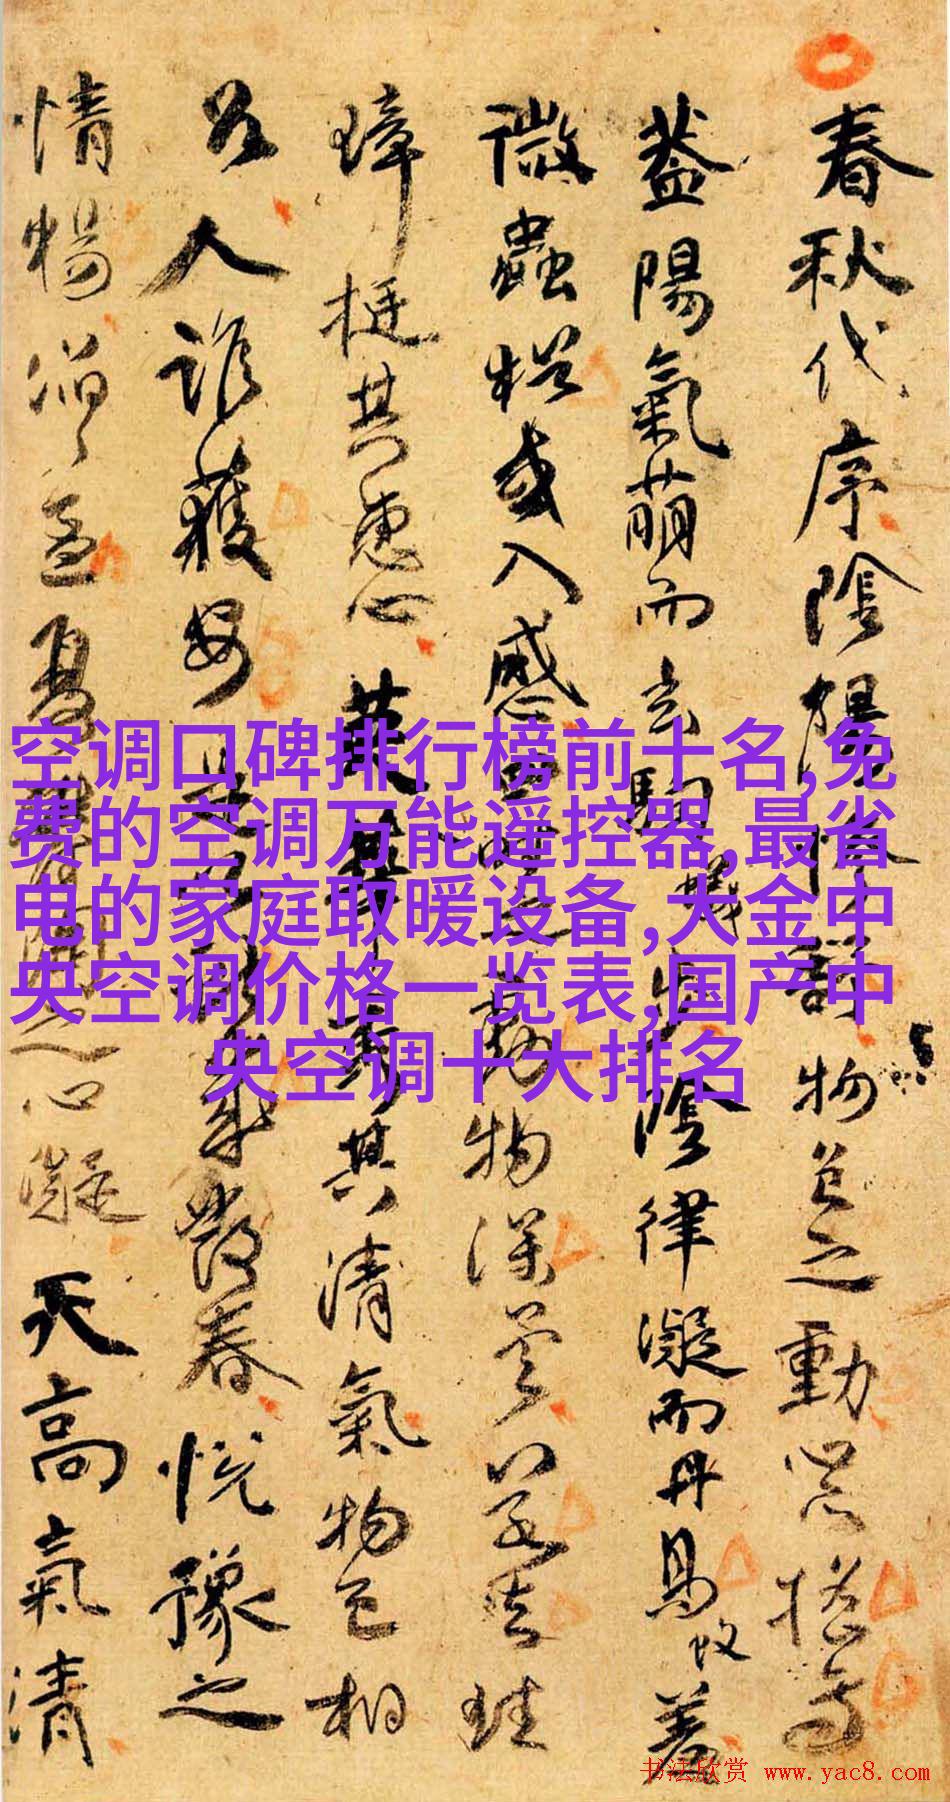 春秋代序陰陽慘舒物色之動心亦搖焉
蓋陽氣萌而玄駒步陰律凝而丹鳥蚊羞
微蟲猶或入感四時之動物深矣若夫珪
璋挺其惠心英華秀其清氣物色相
召人誰獲安是以獻歲發春悅豫之
情暢滔滔孟夏鬱陶之心凝天高氣清
空调口碑排行榜前十名,免
费的空调万能遥控器,最省
电的家庭取暖设备,大金中
央空调价格一览表,国产中
央空调十大排名
书法欣赏 www.yac8.com